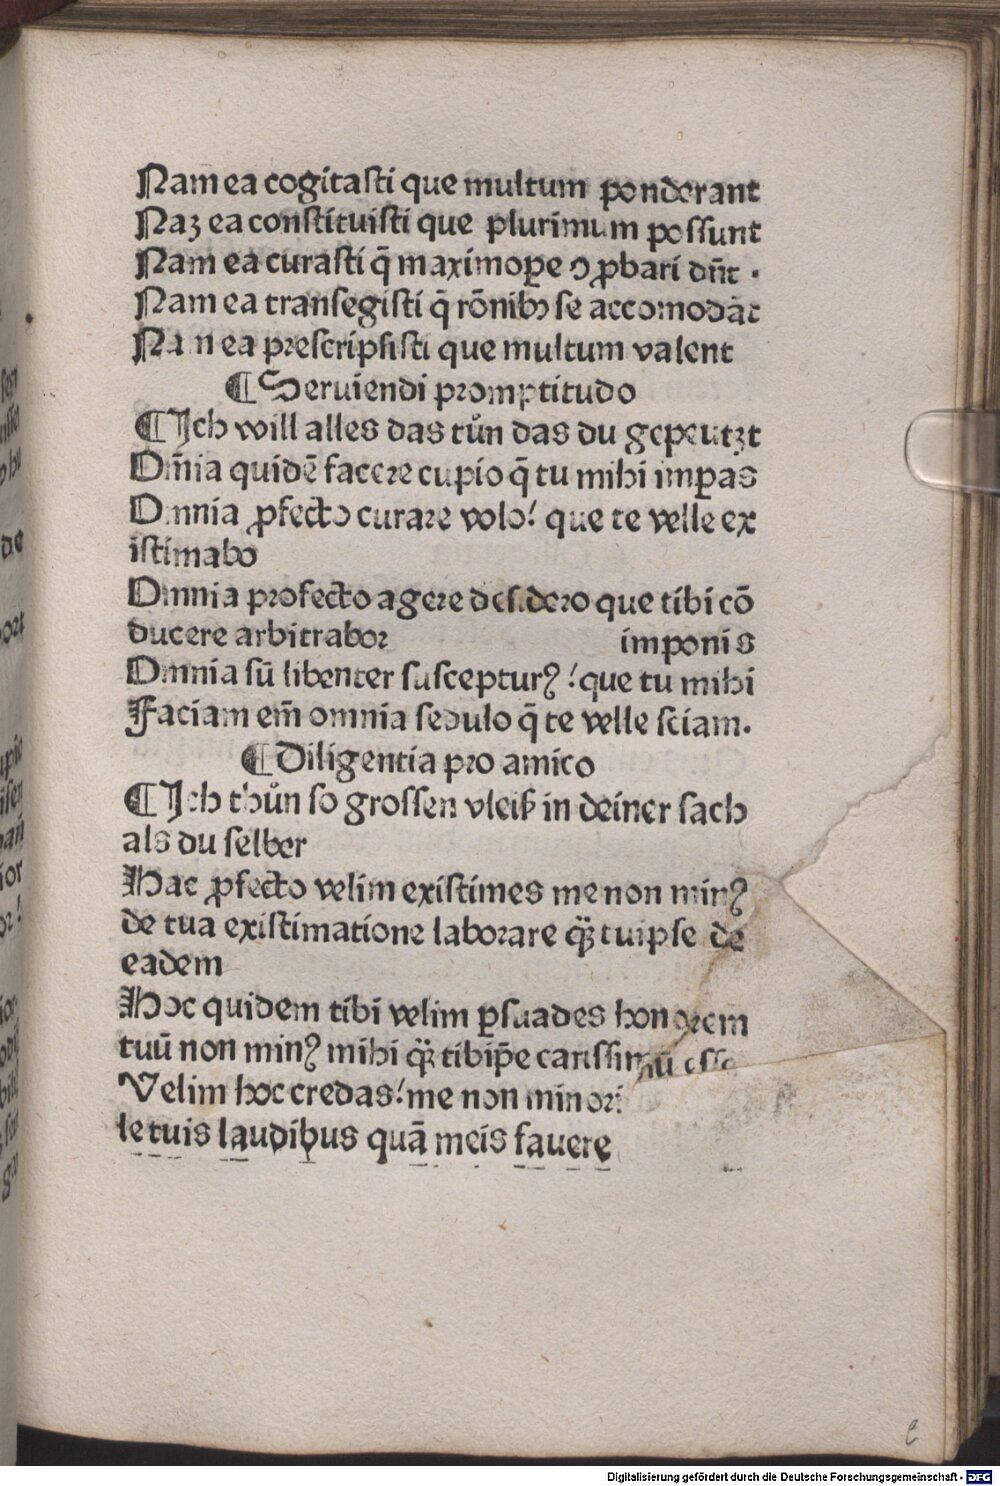 Nam ea cogitasti que multum ponderant
Naꝫ ea constituisti que plurimum possunt
Nam ea curasti q̄ maximoꝑe ꝯꝓbari dn̄t .
Nam ea transegisti q̄ rōnibꝰ se accomodāt
Nam ea prescripsisti que multum valent
¶ Seruiendi promptitudo
¶ Ich will alles das tůn das du gepeutzt
Om̄ia quidē facere cupio q̄ tu mihi imꝑas
Omnia ꝓfecto curare volo! que te velle ex
istimabo
Omnia profecto agere desidero que tibi cō
ducere arbitrabor imponis
Omnia sū libenter susceptur⁹! que tu mihi
Faciam em̄ omnia sedulo q̄ te velle sciam.
¶ Diligentia pro amico
¶ Ich thůn so grossen vleiß in deiner sach
als du selber
Hac ꝓfecto velim existimes me non min⁹
de tua existimatione laborare q̈ꝫ tuipse de
eadem
Hoc quidem tibi velim ꝑsuades honorem
tuū non min⁹ mihi q̈ꝫ tibip̄e carissimū esse
Velim hoc credas! me non minori
le tuis laudibus quā meis fauere
e
Digitalisierung gefördert durch die Deutsche Forschungsgemeinschaft - DFG